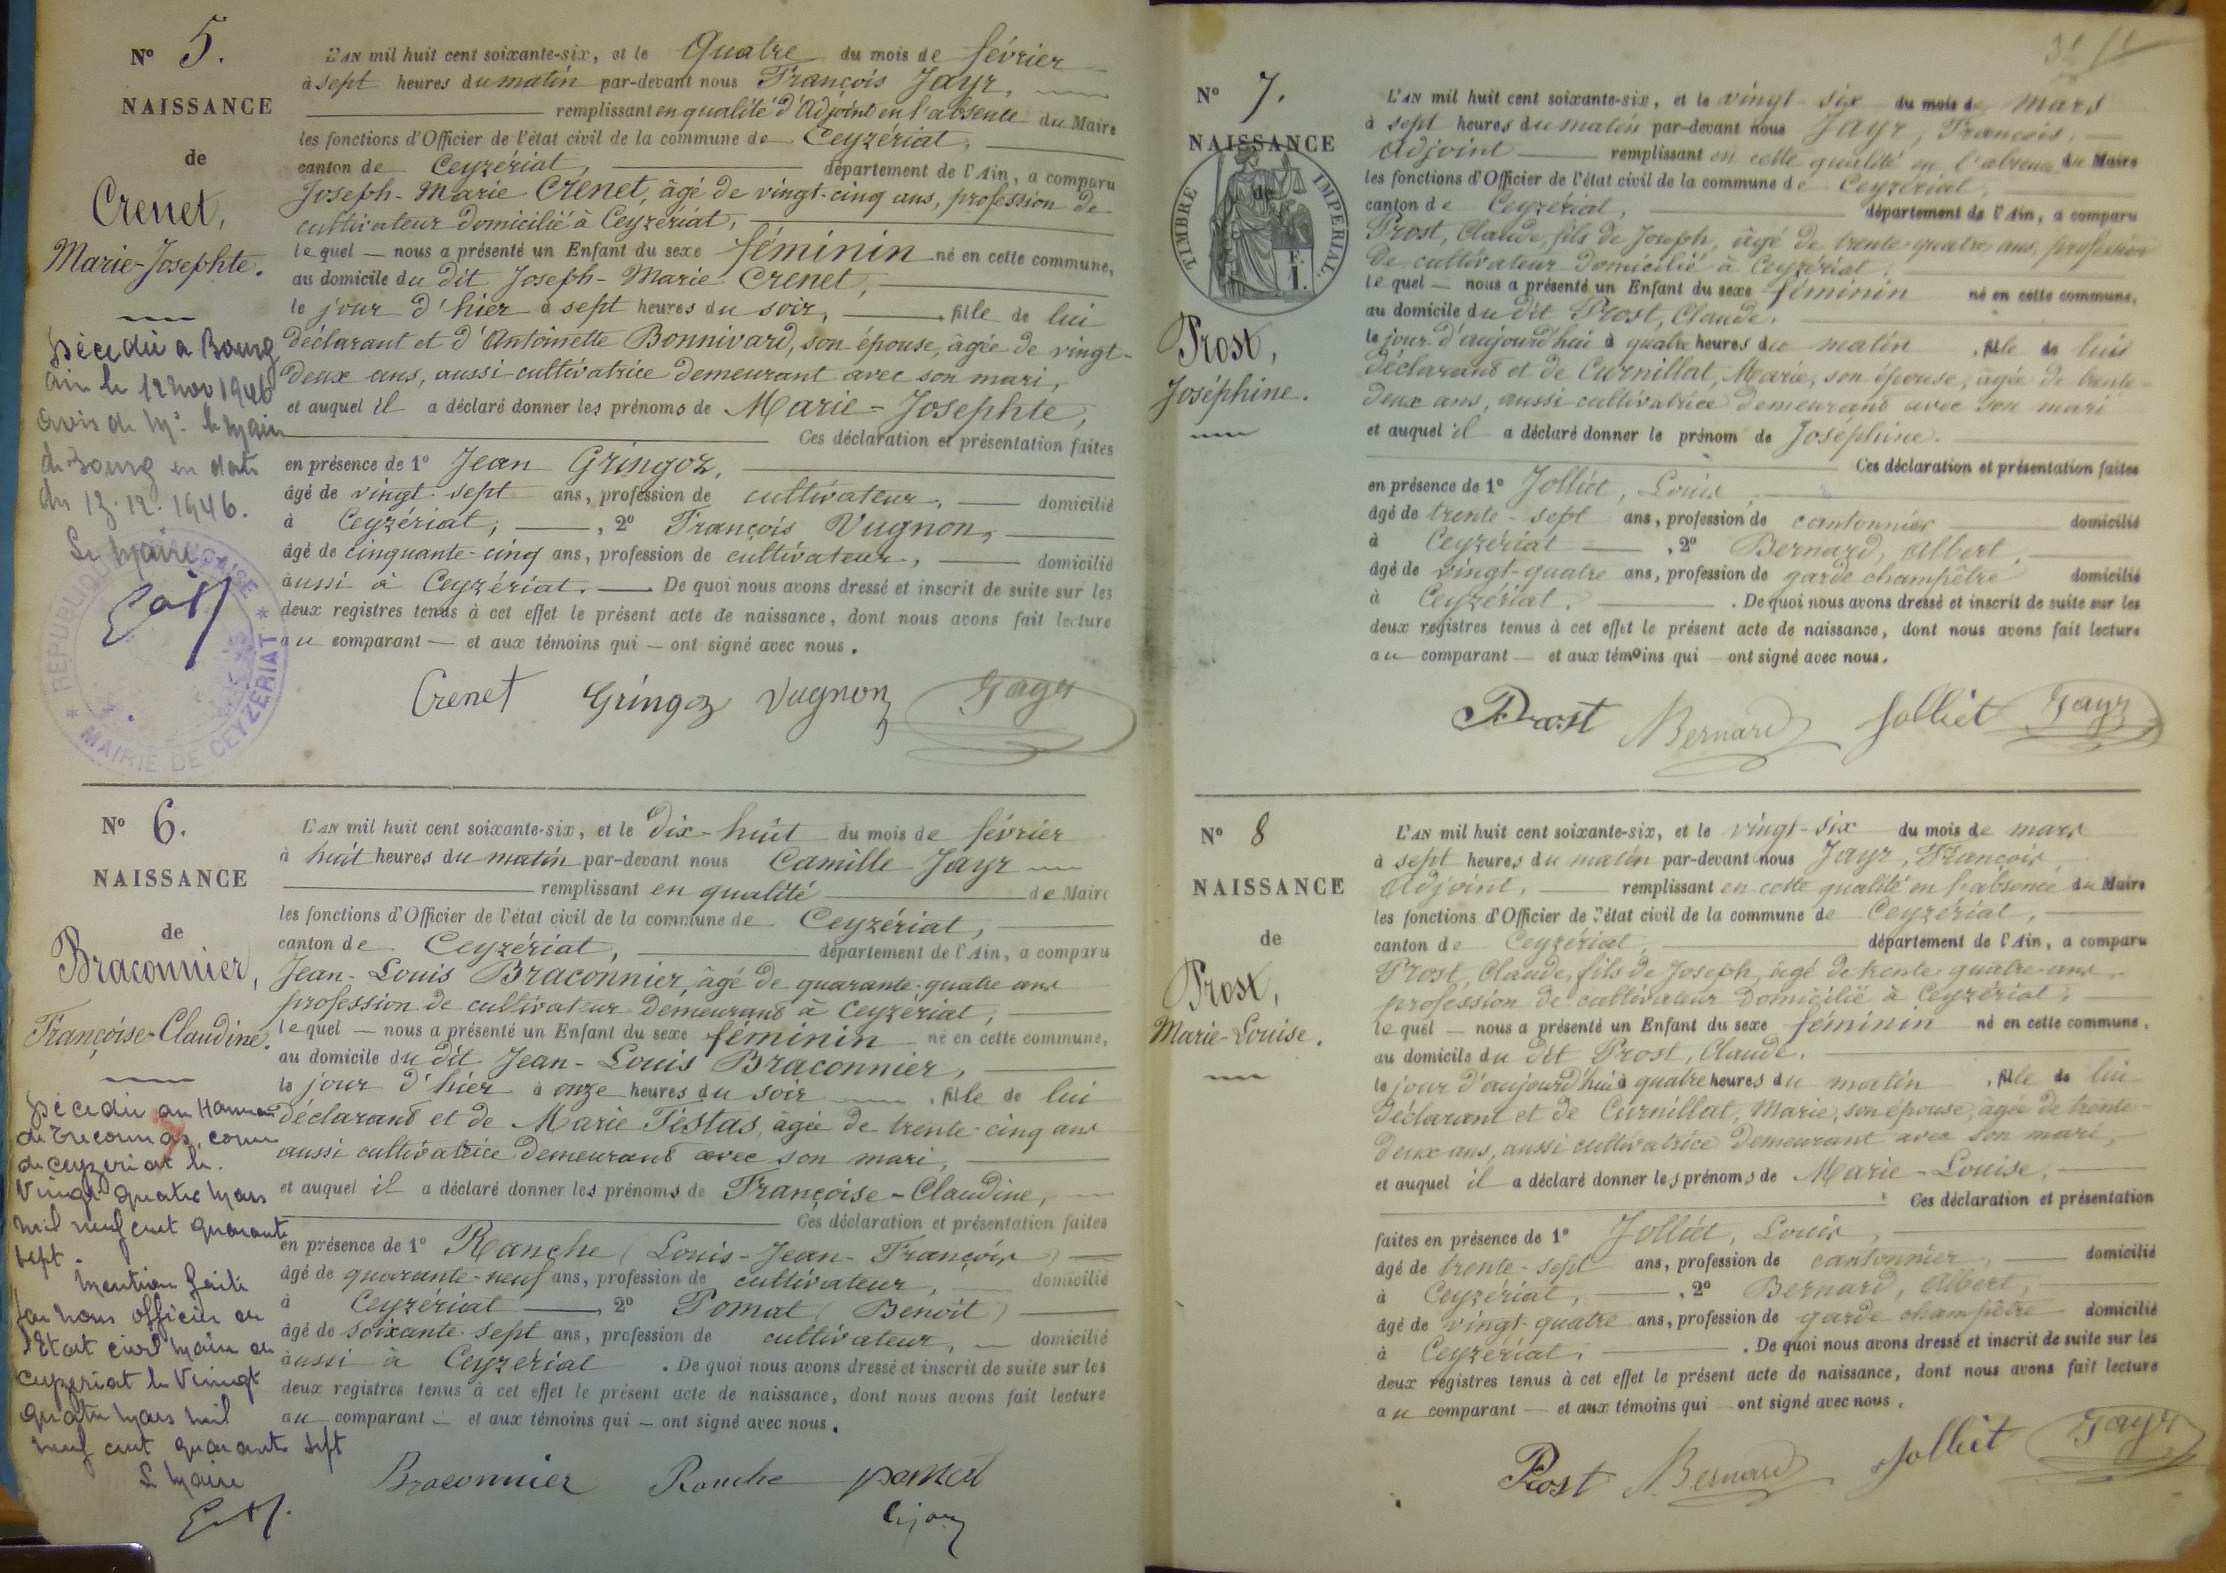 N° 5.
NAISSANCE
de
Crenet,
Marie-Josephte.
Décédée à Bourg
Ain le 12 nov 1946
avis de Mr le Maire
de Bourg en date
du 13.12.1946.
Le Maire
RÉPUBLIQUE FRANÇAISE
* MAIRIE DE CEYZÉRIAT *
L'AN mil huit cent soixante-six, et le Quatre du mois de février
à sept heures du matin par-devant nous François Jayr,
remplissant en qualité d'Adjoint en l'absence du Maire
les fonctions d'Officier de l'état civil de la commune de Ceyzériat,
canton de Ceyzériat, département de l'Ain, a comparu
Joseph-Marie Crenet, âgé de vingt-cinq ans, profession de
cultivateur domicilié à Ceyzériat,
le quel — nous a présenté un Enfant du sexe féminin né en cette commune,
au domicile du dit Joseph-Marie Crenet,
le jour d'hier à sept heures du soir, fille de lui
déclarant et d'Antoinette Bonnivard, son épouse, âgée de vingt-
deux ans, aussi cultivatrice demeurant avec son mari,
et auquel il a déclaré donner les prénoms de Marie-Josephte,
Ces déclaration et présentation faites
en présence de 1° Jean Gringoz,
âgé de vingt-sept ans, profession de cultivateur, domicilié
à Ceyzériat, , 2° François Vugnon,
âgé de cinquante-cinq ans, profession de cultivateur, domicilié
aussi à Ceyzériat. De quoi nous avons dressé et inscrit de suite sur les
deux registres tenus à cet effet le présent acte de naissance, dont nous avons fait lecture
au comparant — et aux témoins qui — ont signé avec nous.
Crenet Gringoz Vugnon Jayr
N° 6.
NAISSANCE
de
Braconnier,
Françoise-Claudine.
Décédée au Hameau
de Treconnas, comm
de Ceyzeriat le
Vingt quatre Mars
mil neuf cent quarante
sept.
Mention faite
par nous officier de
l'Etat civil Maire de
Ceyzeriat le Vingt
quatre Mars mil
neuf cent quarante sept
Le Maire
L'AN mil huit cent soixante-six, et le dix-huit du mois de février
à huit heures du matin par-devant nous Camille Jayr
remplissant en qualité de Maire
les fonctions d'Officier de l'état civil de la commune de Ceyzériat,
canton de Ceyzériat, département de l'Ain, a comparu
Jean-Louis Braconnier, âgé de quarante-quatre ans
profession de cultivateur demeurant à Ceyzériat,
le quel — nous a présenté un Enfant du sexe féminin né en cette commune,
au domicile du dit Jean-Louis Braconnier,
le jour d'hier à onze heures du soir , fille de lui
déclarant et de Marie Testas, âgée de trente-cinq ans
aussi cultivatrice demeurant avec son mari,
et auquel il a déclaré donner les prénoms de Françoise-Claudine,
Ces déclaration et présentation faites
en présence de 1° Ranche (Louis-Jean-François)
âgé de quarante-neuf ans, profession de cultivateur, domicilié
à Ceyzériat , 2° Pomat (Benoit)
âgé de soixante-sept ans, profession de cultivateur, domicilié
aussi à Ceyzériat . De quoi nous avons dressé et inscrit de suite sur les
deux registres tenus à cet effet le présent acte de naissance, dont nous avons fait lecture
au comparant — et aux témoins qui — ont signé avec nous.
Braconnier Ranche pomat
N° 7.
NAISSANCE
de
TIMBRE IMPÉRIAL.
Prost,
Joséphine.
L'AN mil huit cent soixante-six, et le vingt-six du mois de mars
à sept heures du matin par-devant nous Jayr, François,
Adjoint remplissant en cette qualité en l'absence du Maire
les fonctions d'Officier de l'état civil de la commune de Ceyzériat
canton de Ceyzériat, département de l'Ain, a comparu
Prost, Claude, fils de Joseph, âgé de trente-quatre ans, profession
de cultivateur domicilié à Ceyzériat,
le quel — nous a présenté un Enfant du sexe féminin né en cette commune,
au domicile du dit Prost, Claude,
le jour d'aujourd'hui à quatre heures du matin , fille de lui
déclarant et de Curnillat, Marie, son épouse, âgée de trente-
deux ans, aussi cultivatrice demeurant avec son mari
et auquel il a déclaré donner le prénom de Joséphine.
Ces déclaration et présentation faites
en présence de 1° Jolliet, Louis
âgé de trente-sept ans, profession de cantonnier domicilié
à Ceyzériat , 2° Bernard, Albert,
âgé de vingt-quatre ans, profession de garde champêtre domicilié
à Ceyzériat, . De quoi nous avons dressé et inscrit de suite sur les
deux registres tenus à cet effet le présent acte de naissance, dont nous avons fait lecture
au comparant — et aux témoins qui — ont signé avec nous.
Prost Bernard Jolliet Jayr
N° 8
NAISSANCE
de
Prost,
Marie-Louise.
L'AN mil huit cent soixante-six, et le vingt-six du mois de mars
à sept heures du matin par-devant nous Jayr, François,
Adjoint, remplissant en cette qualité en l'absence du Maire
les fonctions d'Officier de l'état civil de la commune de Ceyzériat,
canton de Ceyzériat, département de l'Ain, a comparu
Prost, Claude, fils de Joseph, âgé de trente-quatre ans,
profession de cultivateur domicilié à Ceyzériat,
le quel — nous a présenté un Enfant du sexe féminin né en cette commune,
au domicile du dit Prost, Claude,
le jour d'aujourd'hui à quatre heures du matin , fille de lui
déclarant et de Curnillat, Marie, son épouse, âgée de trente-
deux ans, aussi cultivatrice demeurant avec son mari,
et auquel il a déclaré donner les prénoms de Marie-Louise,
Ces déclaration et présentation
faites en présence de 1° Jolliet, Louis,
âgé de trente-sept ans, profession de cantonnier, domicilié
à Ceyzériat, , 2° Bernard, Albert,
âgé de vingt-quatre ans, profession de garde champêtre domicilié
à Ceyzériat, . De quoi nous avons dressé et inscrit de suite sur les
deux registres tenus à cet effet le présent acte de naissance, dont nous avons fait lecture
au comparant — et aux témoins qui — ont signé avec nous.
Prost Bernard Jolliet Jayr